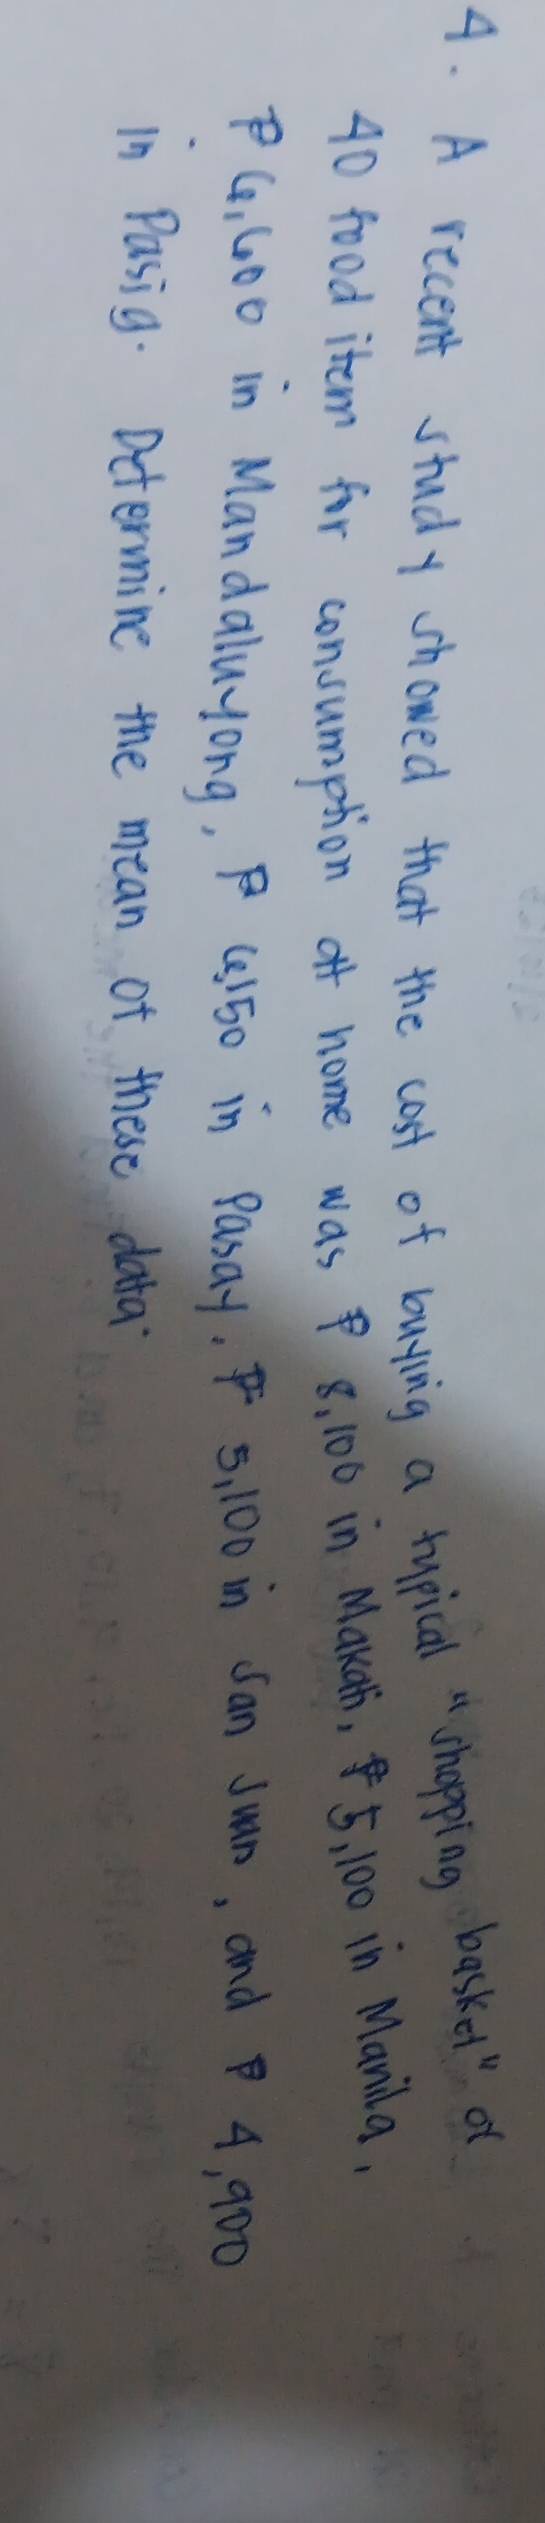 4. A recent study showed that the cost of buying a typical "shopping basket" of
40 food item for consumption at home was ₱ 8,100 in Makati, ₱ 5,100 in Manila,
₱ 6,600 in Mandaluyong, ₱ 6,150 in Pasay, ₱ 5,100 in San Juan, and ₱ 4,900
in Pasig. Determine the mean of these data.